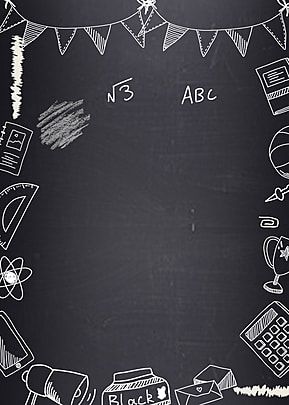 √3 ABC
Black